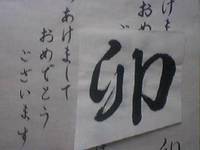 あけま
おめで
卯
あけまして
おめでとう
ございます